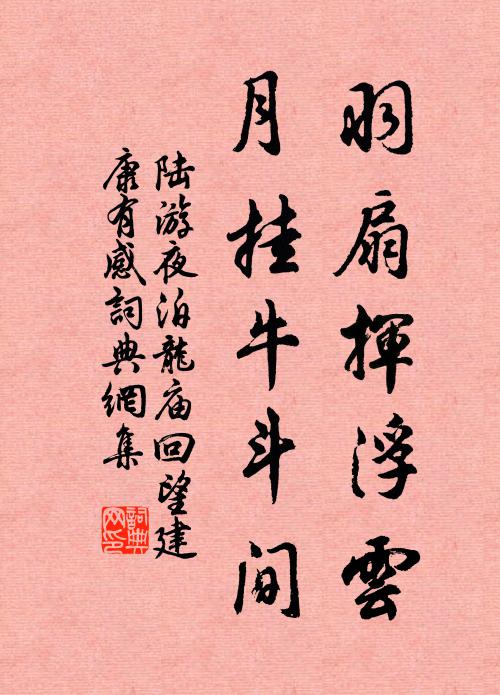 羽扇揮浮雲
月挂牛斗间
陆游夜泊龍庙回望建
康有感詞典網集
詞典
网印